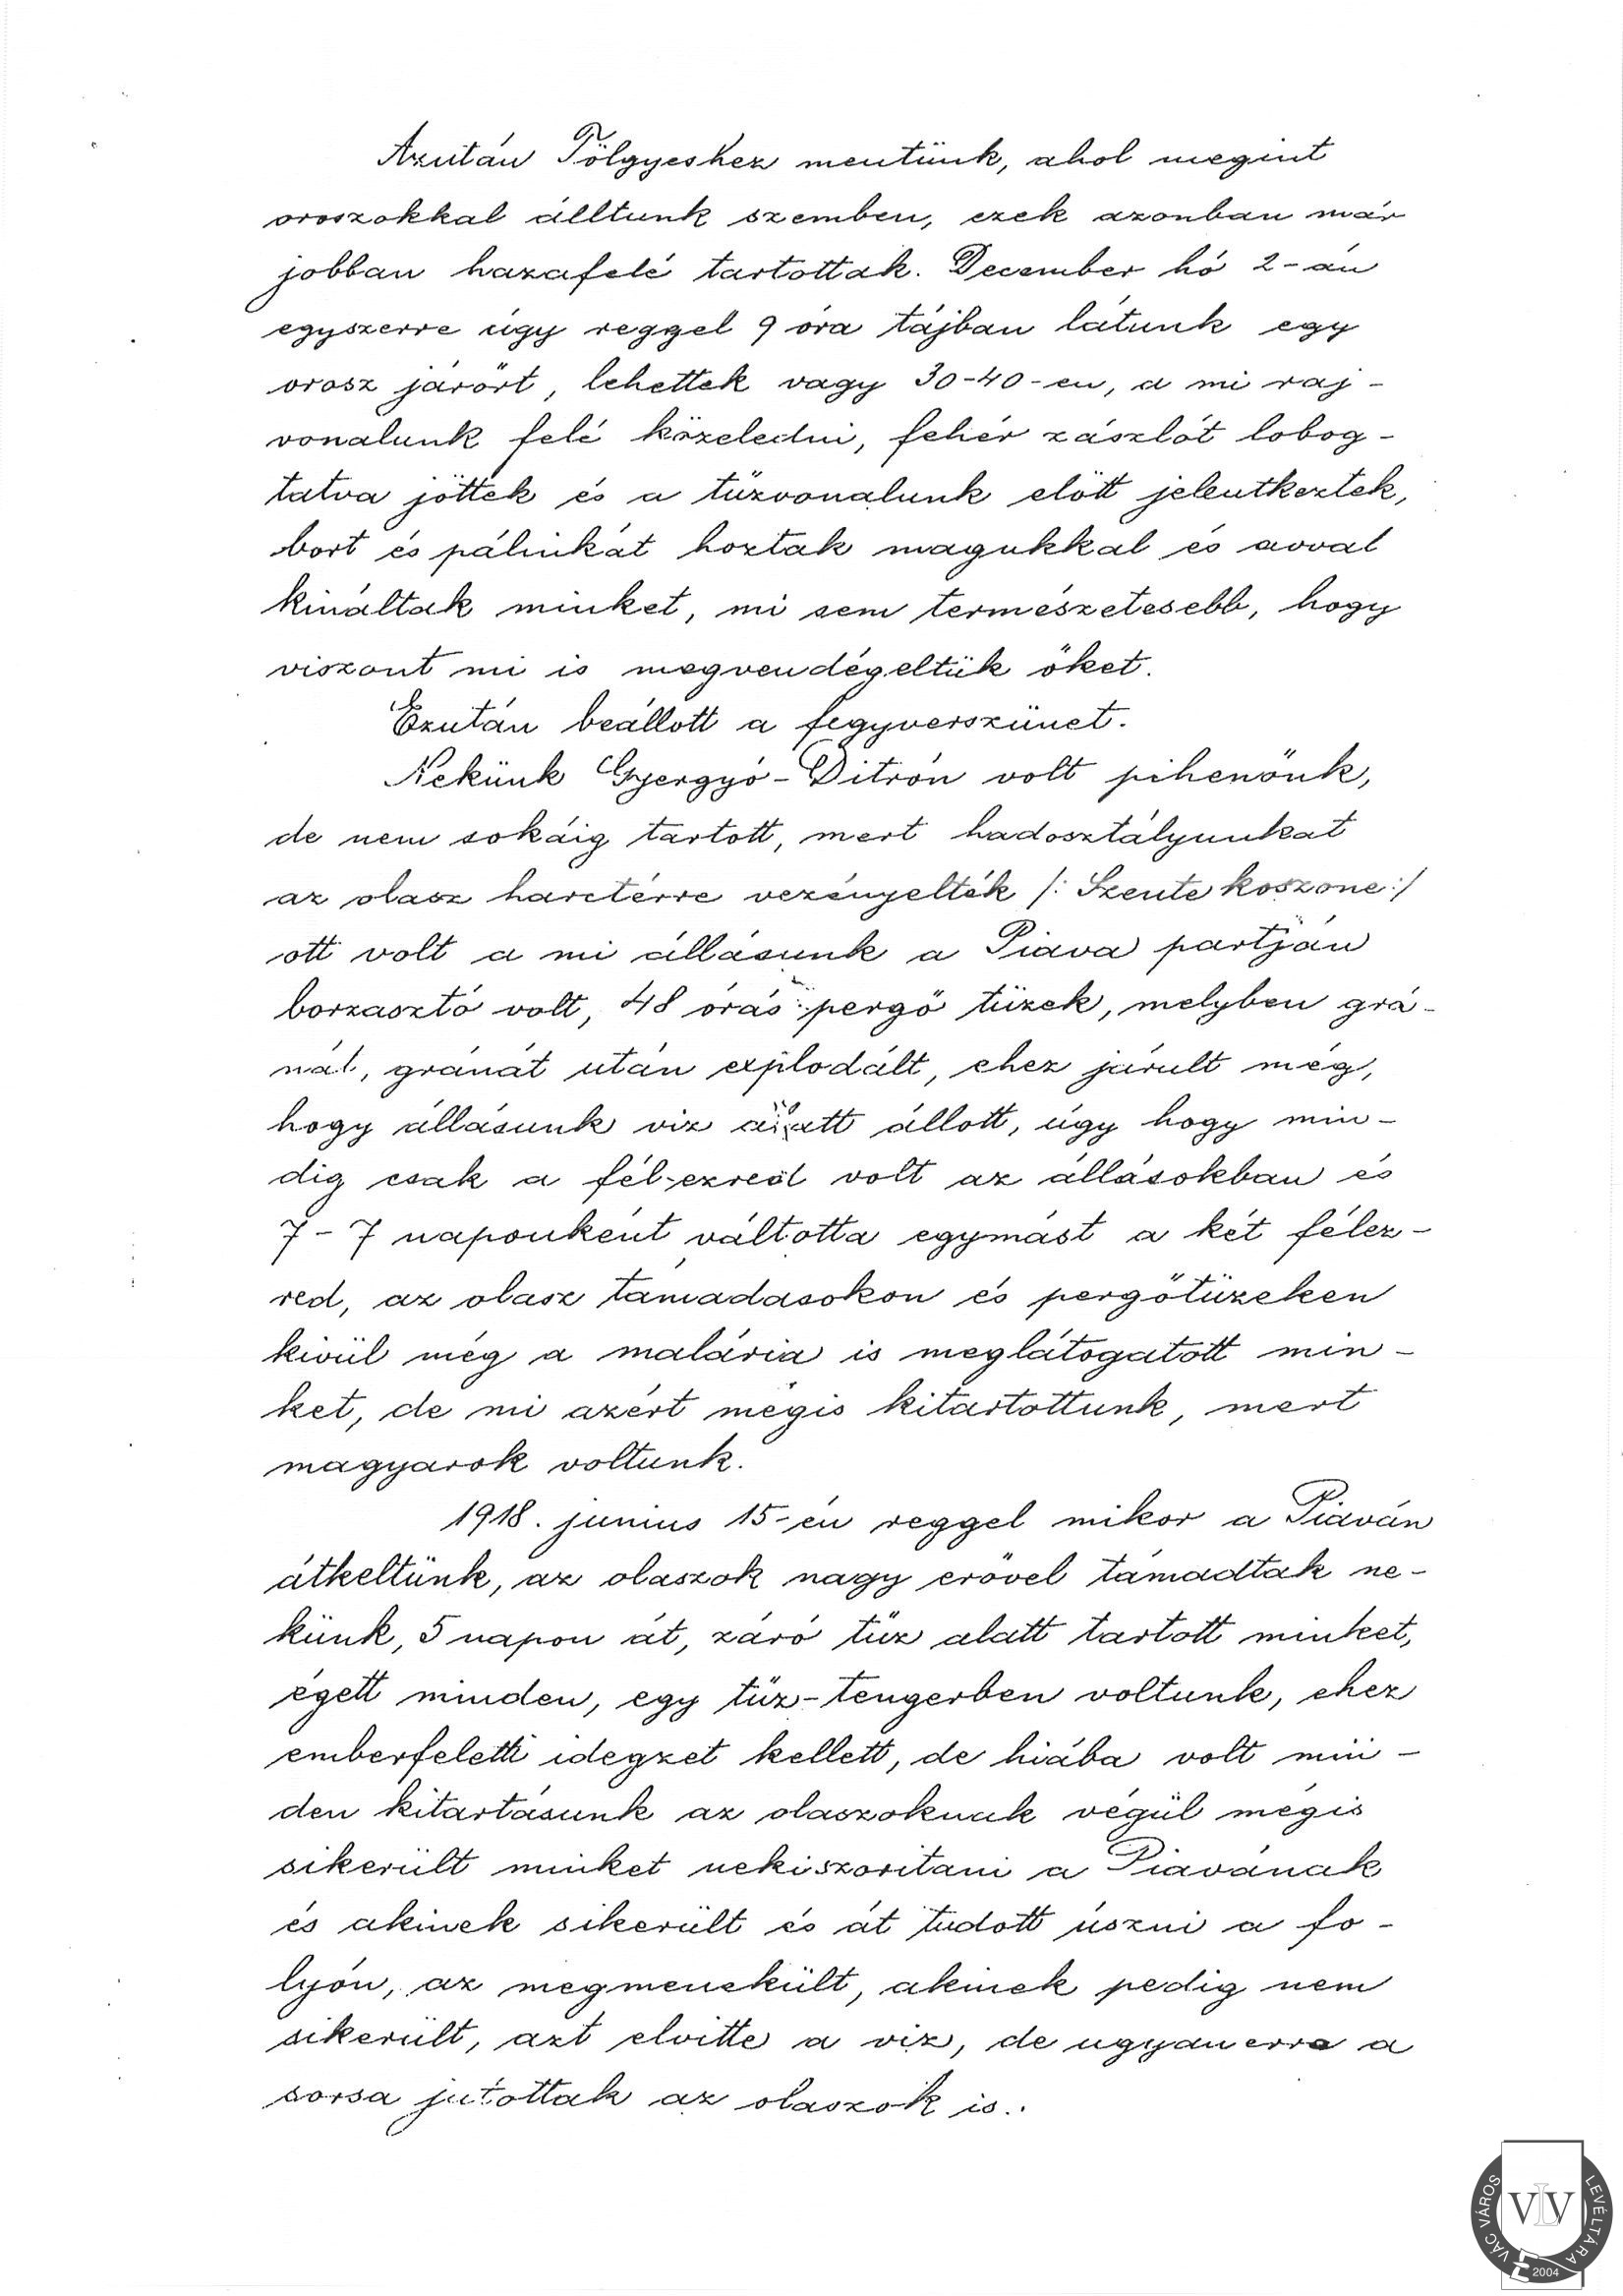 Azután Tölgyeshez mentünk, ahol megint
oroszokkal álltunk szemben, ezek azonban már
jobban hazafelé tartottak. December hó 2-án
egyszerre úgy reggel 9 óra tájban látunk egy
orosz járőrt, lehettek vagy 30-40-en, a mi raj-
vonalunk felé közeledni, fehér zászlót lobog-
tatva jöttek és a tűzvonalunk előtt jelentkeztek,
bort és pálinkát hoztak magukkal és avval
kináltak minket, mi sem természetesebb, hogy
viszont mi is megvendégeltük őket.
Ezután beállott a fegyverszünet.
Nekünk Gyergyó-Ditrón volt pihenőnk,
de nem sokáig tartott, mert hadosztályunkat
az olasz harctérre vezényelték /: Szente koszone :/
ott volt a mi állásunk a Piava partján
borzasztó volt, 48 órás pergő tüzek, melyben grá-
nát, gránát után explodált, ehez járult még,
hogy állásunk viz alatt állott, úgy hogy min-
dig csak a fél-ezred volt az állásokban és
7-7 naponként váltotta egymást a két félez-
red, az olasz támadásokon és pergőtüzeken
kivül még a malária is meglátogatott min-
ket, de mi azért mégis kitartottunk, mert
magyarok voltunk.
1918. junius 15-én reggel mikor a Piaván
átkeltünk, az olaszok nagy erővel támadtak ne-
künk, 5 napon át, záró tűz alatt tartott minket,
égett minden, egy tűz-tengerben voltunk, ehez
emberfeletti idegzet kellett, de hiába volt min-
den kitartásunk az olaszoknak végül mégis
sikerült minket nekiszoritani a Piavának
és akinek sikerült és át tudott úszni a fo-
lyón, az megmenekült, akinek pedig nem
sikerült, azt elvitte a viz, de ugyanerra a
sorsa jutottak az olaszok is.
VÁC VÁROS LEVÉLTÁRA
VLV
2004